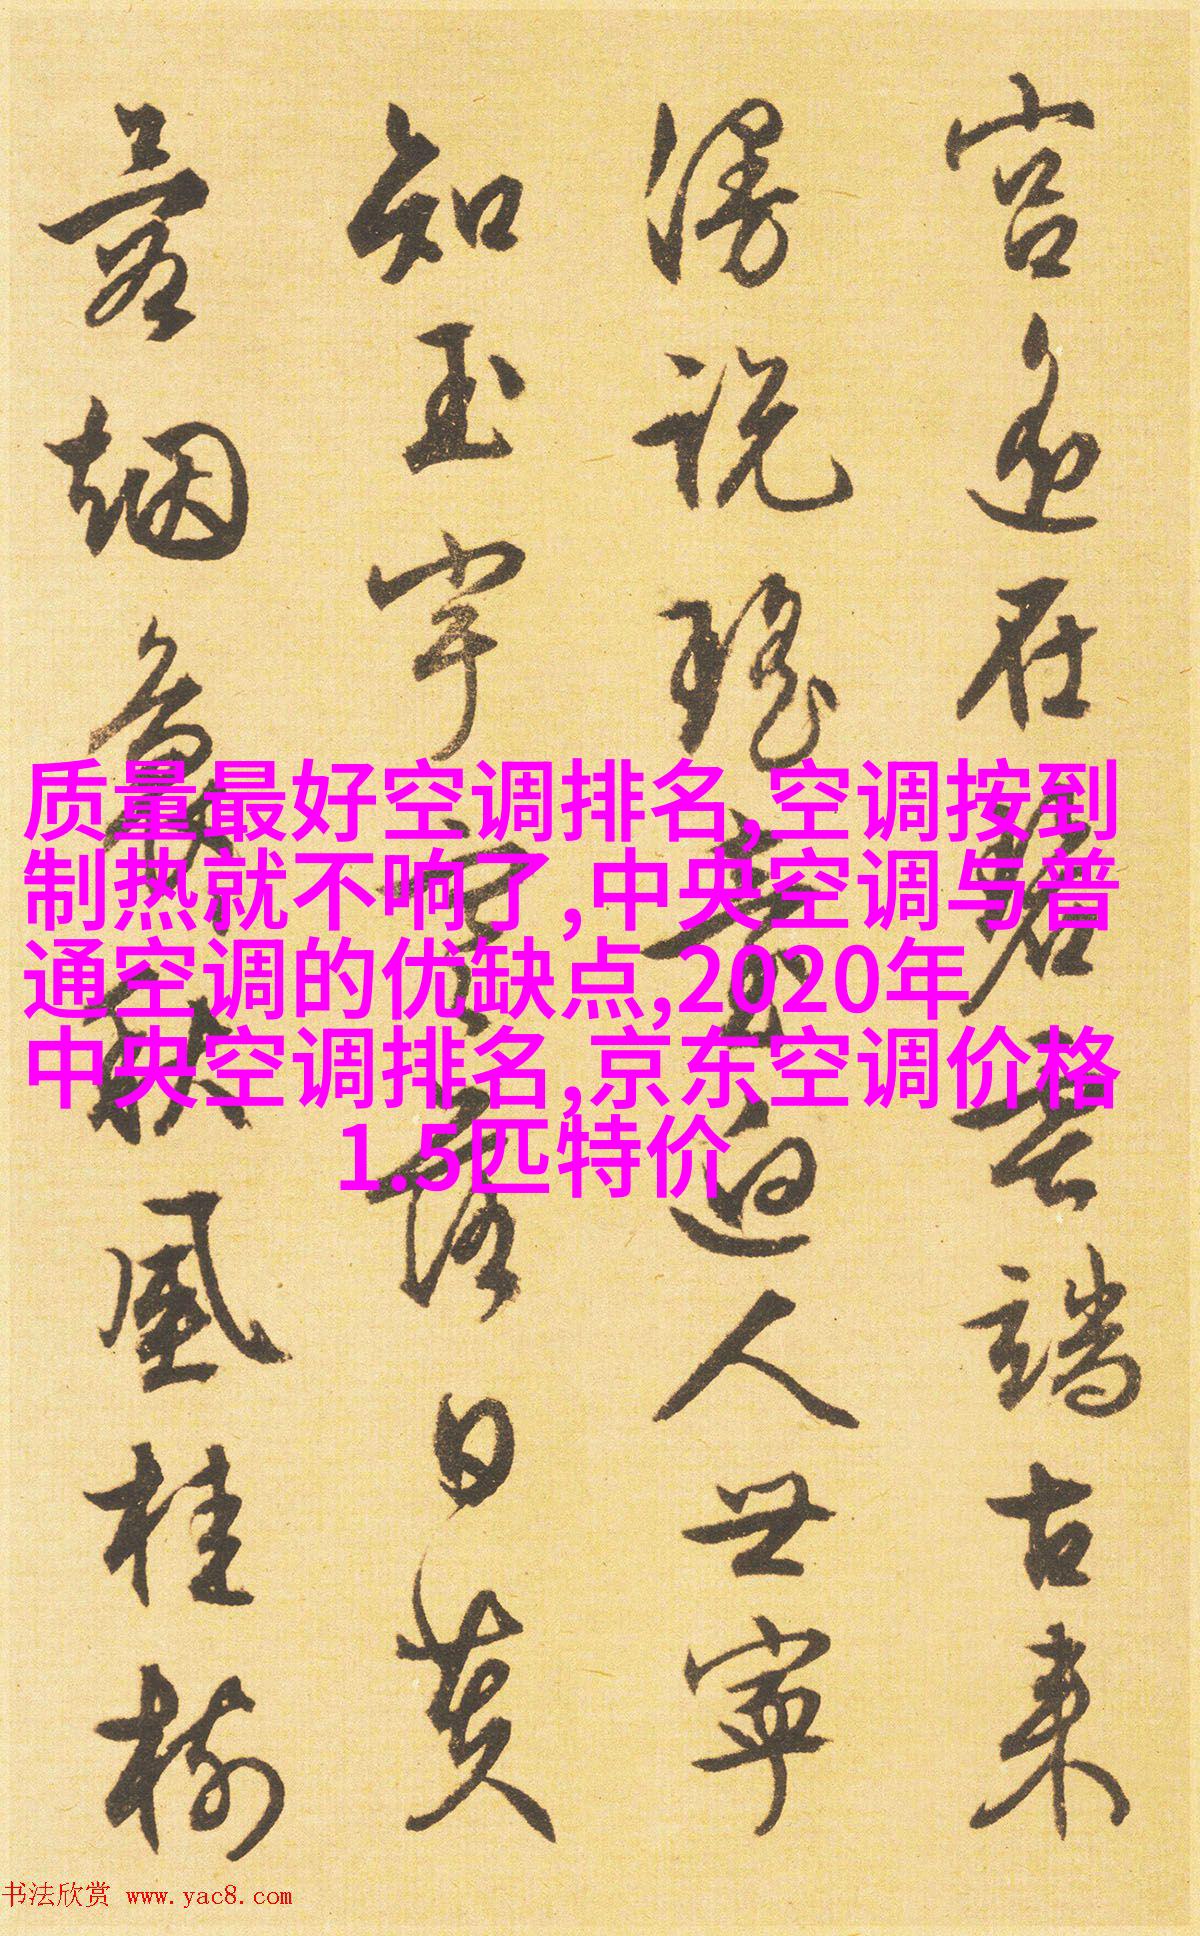 宫在碧雲端古来
漫説瑶臺迥人世寧
知玉宇落日
烟秋風桂樹
质量最好空调排名,空调按到
制热就不响了,中央空调与普
通空调的优缺点,2020年
中央空调排名,京东空调价格
1.5匹特价
书法欣赏 www.yac8.com